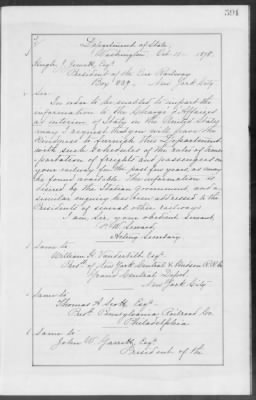 391
Department of State,
Washington, Oct. 10 1878.
Hugh J. Jewett, Esq.
President of the Erie Railway
Box 839. New York City
Sir:
In order to be enabled to impart the
information to the Chargé d'Affaires
ad interim of Italy in the United States
may I request that you will have the
kindness to furnish this Department
with such Schedules of the rates of trans
portation of freights and passengers on
your railway for the past few years, as may
be found available. The information is
desired by the Italian Government, and a
similar inquiry has been addressed to the
Presidents of several other railways.
I am, Sir, your obedient Servant,
F. W. Seward,
Acting Secretary
Same to
William H. Vanderbilt Esq.
Prest. of New York Central & Hudson R. R. Co.
Grand Central Depot,
New York City
Same to
Thomas A. Scott Esq.
Prest. Pennsylvania Railroad Co.
Philadelphia
Same to
John W. Garrett, Esq.
President of the